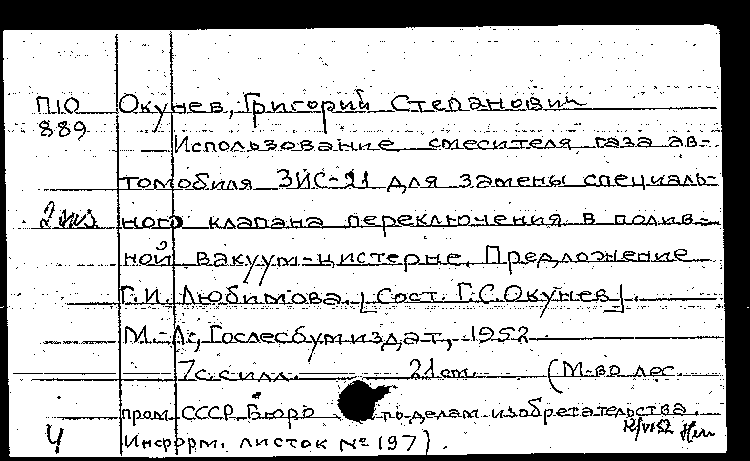 П10 Окунев, Григорий Степанович
889
Использование смесителя газа ав-
томобиля ЗИС-21 для замены специаль-
2 экз. ного клапана переключения в полив-
ной вакуум-цистерне. Предложение
Г.И. Любимова. [Сост. Г.С. Окунев].
М.-Л., Гослесбумиздат, 1952
7 с. с илл. 21 см. (М-во лес.
пром. СССР. Бюро по делам изобретательства.
Ч Информ. листок № 197).